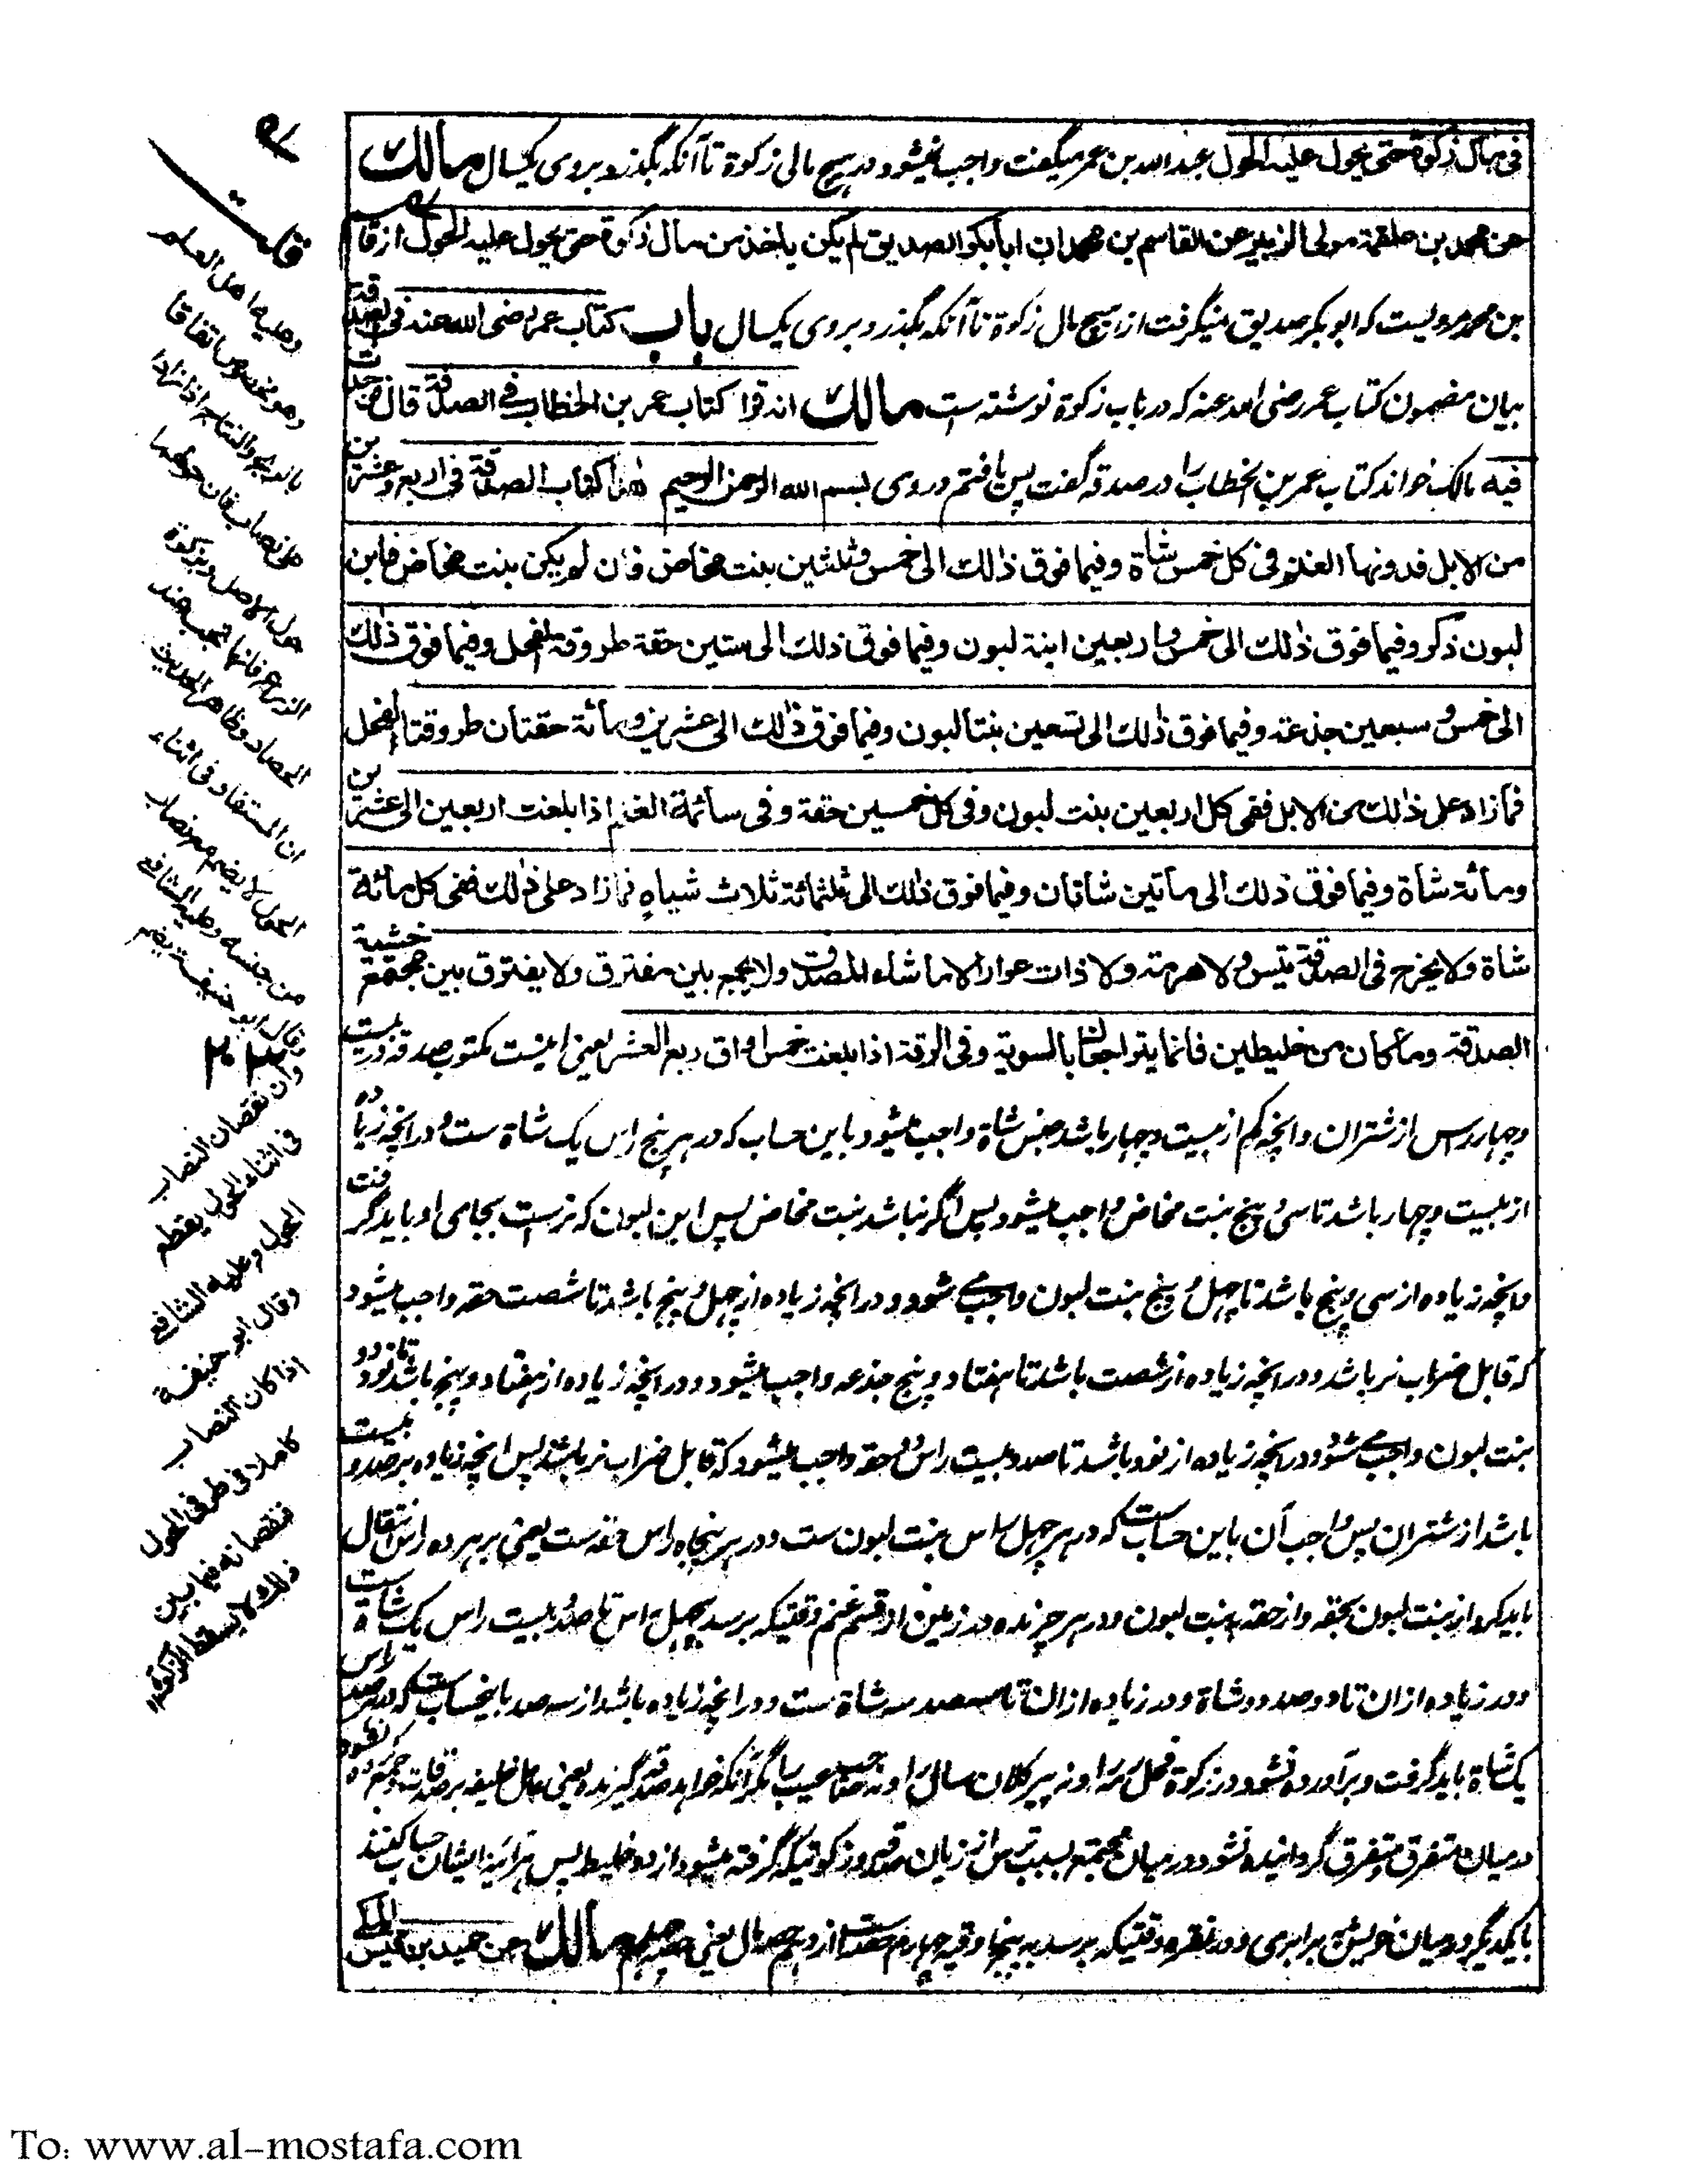 فی مال زکوة حتی یحول علیه الحول عبد الله بن عمر میگفت واجب نمیشود در هیچ مالی زکوة تا آنکه بگذرد بروی یکسال مالک
عن محمد بن علقمة مولی الزبیر عن القاسم بن محمد ان ابا بکر الصدیق لم یکن یاخذ من مال زکوة حتی یحول علیه الحول از قاسم
بن محمد مرویست که ابو بکر صدیق نمیگرفت از هیچ مال زکوة تا آنکه بگذرد بروی یکسال باب کتاب عمر رضی الله عنه فی الصدقة
بیان مضمون کتاب عمر رضی الله عنه که در باب زکوة نوشته است مالک انه قرا کتاب عمر بن الخطاب فی الصدقة قال فوجدت
فیه مالک خواند کتاب عمر بن الخطاب را در صدقه گفت پس یافتم در وی بسم الله الرحمن الرحیم هذا کتاب الصدقة فی اربع وعشرین
من الابل فدونها الغنم فی کل خمس شاة وفیما فوق ذلك الی خمس وثلثین بنت مخاض فان لم یکن بنت مخاض فابن
لبون ذکر وفیما فوق ذلك الی خمس واربعین ابنة لبون وفیما فوق ذلك الی ستین حقة طروقة الفحل وفیما فوق ذلك
الی خمس و سبعین جذعة وفیما فوق ذلك الی تسعین بنتا لبون وفیما فوق ذلك الی عشرین ومائة حقتان طروقتا الفحل
فما زاد علی ذلك من الابل ففی کل اربعین بنت لبون وفی کل خمسین حقة وفی سائمة الغنم اذا بلغت اربعین الی عشرین
ومائة شاة وفیما فوق ذلك الی مأتین شاتان وفیما فوق ذلك الی ثلثمائة ثلاث شیاه فما زاد علی ذلك ففی کل مائة
شاة ولا یخرج فی الصدقة تیس ولا هرمة ولا ذات عوار الا ما شاء المصدق ولا یجمع بین مفترق ولا یفترق بین مجتمع خشیة
الصدقة وما کان من خلیطین فانما یتراجعان بالسویة وفی الرقة اذا بلغت خمس اواق ربع العشر یعنی اینست مکتوب صدقه در بیست
وچهار راس از شتران وانچه کم از بیست وچهار باشد جنس شاة واجب میشود باین حساب که در هر پنج راس یک شاة ست و در انچه زیاده
از بیست وچهار باشد تا سی و پنج بنت مخاض واجب میشود پس اگر نباشد بنت مخاض پس ابن لبون که نرست بجای او باید گرفت
وانچه زیاده از سی و پنج باشد تا چهل و پنج بنت لبون واجب می شود و در انچه زیاده از چهل و پنج باشد تا شصت حقه واجب میشود
که قابل ضراب نر باشد و در انچه زیاده از شصت باشد تا هفتاد و پنج جذعه واجب میشود و در انچه زیاده از هفتاد و پنج باشد تا نود دو
بنت لبون واجب می شود و در انچه زیاده از نود باشد تا صد و بیست راس دو حقه واجب میشود که قابل ضراب نر باشند پس انچه زیاده بر صد و بیست
باشد از شتران پس واجب آن باین حساب ست که در هر چهل راس بنت لبون ست و در هر پنجاه راس حقه ست یعنی بر هر ده راس انتقال
باید کرد از بنت لبون بحقه و از حقه به بنت لبون و در هر چرنده در زمین از قسم غنم وقتیکه برسد بچهل راس تا صد و بیست راس یک شاة ست
و در زیاده از ان تا دو صد دو شاة و در زیاده از ان تا سه صد سه شاة ست و در انچه زیاده باشد از سه صد باینحساب ست که در هر صد راس
یک شاة باید گرفت و برآورده نشود در زکوة فحل بز را و نه پیر کلان سال را و نه صاحب عیب را مگر آنکه خواهد صدقه گیرنده یعنی عامل خلیفه بر صدقات و جمع کرده نشود
درمیان متفرق و متفرق گردانیده نشود درمیان مجتمع بسبب ترس از زیان صدقه و زکوتیکه گرفته میشود از دو خلیط پس هر آئینه ایشان حساب کنند
با یکدیگر درمیان خویش برابری و در نقره وقتیکه برسد به پنج اوقیه چهارم حصه است از دهم حصه مال یعنی چهلم حصه مالک عن حمید بن قیس المکی
قلت
وعلیه اهل العلم
وهو مخصوص اتفاقا
بالربح والنتاج اذا زادا
علی نصاب فان حولهما
حول الاصل وبزکوة
الزرع فانها تجب عند
الحصاد وظاهر الحدیث
ان المستفاد فی اثناء
الحول لا یضم مع نصاب
من جنسه وعلیه الشافعی
وقال ابو حنیفة یضم
وان نقصان النصاب
فی اثناء الحول یقطع
الحول وعلیه الشافعی
وقال ابو حنیفة
اذا کان النصاب
کاملا فی طرفی الحول
فنقصانه فیما بین
ذلك لا یسقط الزکوة
۲۰۳
To: www.al-mostafa.com